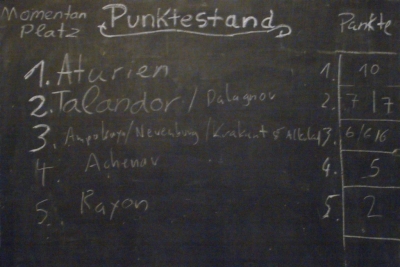 Momentan Punktestand Punkte
Platz
1. Aturien 1. 10
2. Talandor / Dalagnov 2. 7/7
3. /Neuenburg/ 3. 6/6/6
4. Achenav 4. 5
5. Rayon 5. 2